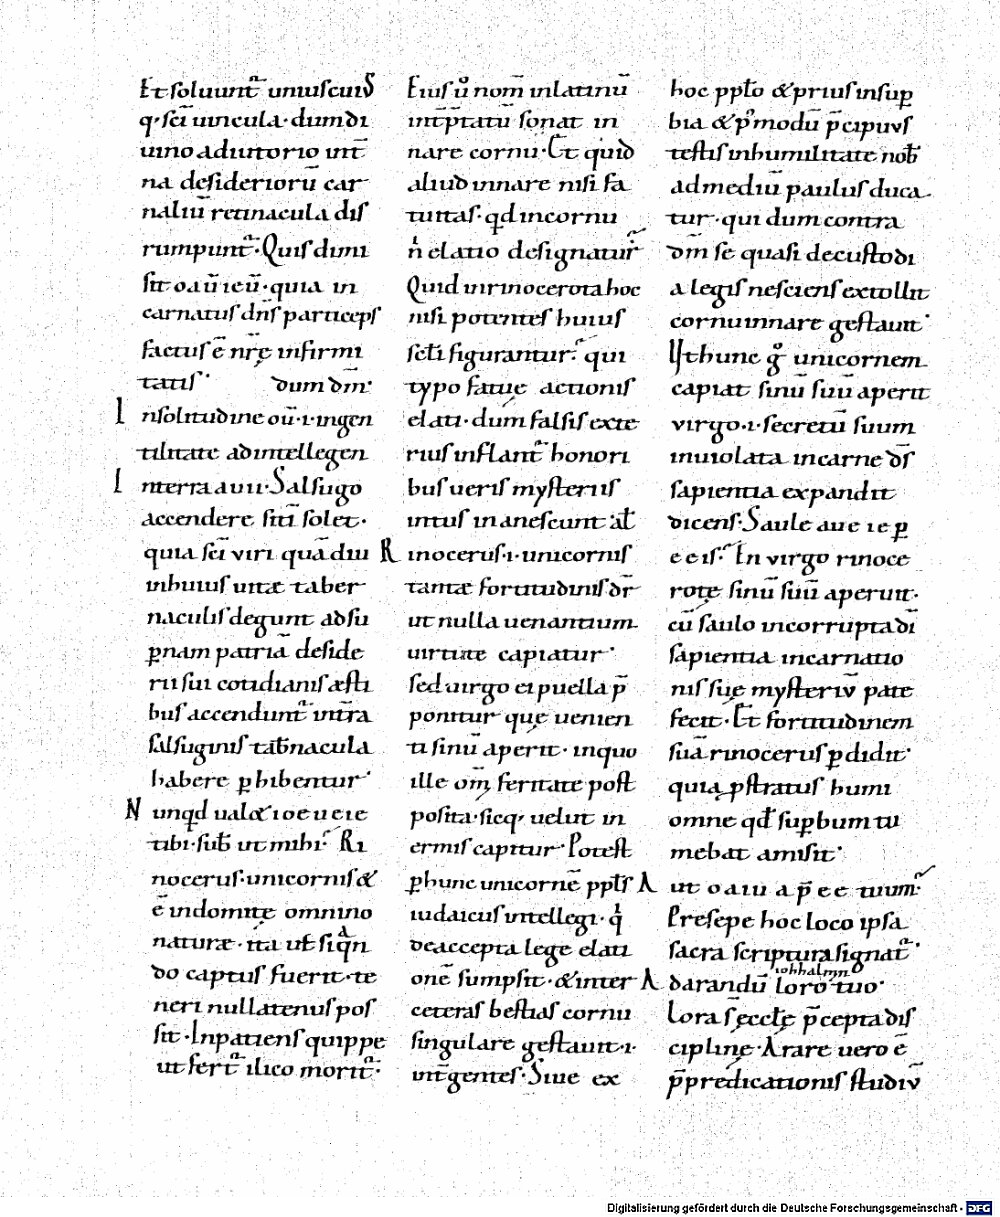 Et soluunt᷑ uniuscuiꝰ
q· sc̄i uincula· dum di
uino adiutorio int̄
na desideriorū car
naliū retinacula dis
rumpunt᷑· Quis dimi
sit o aū ieū· quia in
carnatus dn̄s particeps
factus ē nr̄ę infirmi
tatis· dum dm̄·
In solitudine oū· i· in gen
tilitate ad intellegen
In terra a uii· Salsugo
accendere sitī solet·
quia sc̄i viri quādiu
in huius uitæ taber
naculis degunt ad su
ꝑnam patriā deside
rii sui cotidianis æsti
bus accendunt᷑ int̄ra
salsuginis tab̄nacula
habere ꝑhibentur·
Nunqd ual& ioe u e ie
tibi· sub̄ ut mihi· Ri
nocerus· unicornis &
ē indomitę omnino
naturæ· ita ut siqn
do captus fuerit· te
neri nullatenus pos
sit· Inpatiens quippe
ut fert᷑ ilico morit᷑·
Eius ů nom̄ in latinū
int̄p̄tatū sonat in
nare cornu· Et quid
aliud in nare nisi fa
tuitas· qd in cornu
n̄ elatio designatur
Quid ui rinocerota hoc
nisi potentes huius
sc̄li figurantur· qui
typo fatuę actionis
elati· dum falsis exte
rius inflant᷑ honori
bus ueris mysteriis
intus inanescunt· al̄
Rinocerus· i· unicornis
tantæ fortitudinis dr̄
ut nulla uenantium
uirtute capiatur·
sed uirgo ei puella p̄
ponitur quę uenien
ti sinū aperit· in quo
ille om̄ feritate post
posita· sicq; uelut in
ermis capitur· Potest
ꝑ hunc unicornē ppl̄s
iudaicus intellegi· q
de accepta lege elati
onē sumpsit· & inter
ceteras bestias cornu
singulare gestauit· i·
int̄ gentes· Siue ex
hoc ppl̄o & prius in suꝑ
bia & p modū p̄cipuus
testis in humilitate nob̄
ad mediū paulus duca
tur· qui dum contra
dm̄ se quasi de custodi
a legis nesciens extollit
cornu in nare gestauit·
Ut hunc g unicornem
capiat sinū suū aperit
virgo· i· secretū suum
inuiolata in carne ds̄
sapientia expandit
dicens· Saule a u e i e ꝑ
e e is· In virgo rinoce
rotę sinū suū aperuit·
cū saulo incorrupta di
sapientia incarnatio
nis suę mysteriū pate
fecit· Et fortitudinem
suā rinocerus ꝑdidit·
quia pstratus humi
omne qd̄ suꝑbum tu
mebat amisit·
Aut o a iu a p̄ e e tuum·
Presepe hoc loco ipsa
sacra scriptura signat᷑·
iohhalmn
Ad arandū loro tuo·
Lora s̄ ęcclę p̄cepta dis
ciplinę· Arare uero ē
p̄ predicationis studiū
Digitalisierung gefördert durch die Deutsche Forschungsgemeinschaft - DFG